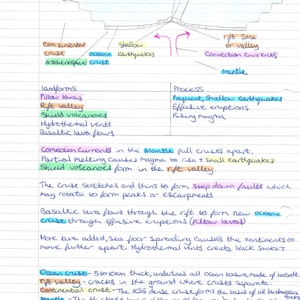 continental crust
asthenosphere
oceanic crust
shallow earthquakes
rift zone or valley
Convection currents
mantle
landforms
Process
Pillow lavas
frequent, shallow earthquakes
Rift valley
Effusive eruptions
Shield volcanoes
Rising magma
Hydrothermal vents
Basaltic lava flows
Convection currents in the mantle pull crusts apart.
Partial melting causes magma to rise & small earthquakes
Shield volcanoes form in the rift valley.
The crust stretches and thins to form step down faults which
may rotate to form peaks or escarpments
Basaltic lava flows through the rift to form new oceanic
crust through effusive eruptions (pillow lavas)
More lava added, sea floor spreading causes the continents to
move further apart. Hydrothermal vents create black smokers
Ocean crust - 5-10km thick, underlies all ocean basins, made of basalt
Rift valley - cracks in the ground where crusts separate.
Continental crust - The less dense crust, forms the basis of all